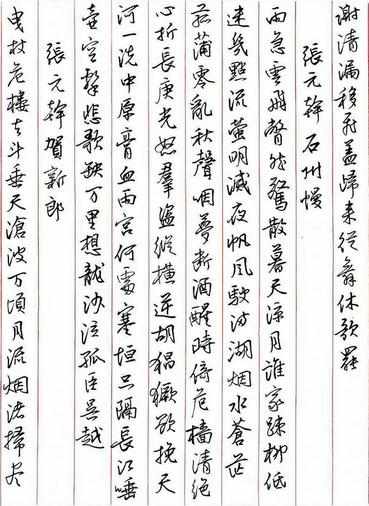 謝清漏移飛盖歸来從舞休歌罷
張元幹石州慢
雨急雲飛瞥然驚散暮天涼月誰家疎柳低
迷幾點流螢明滅夜帆風駛滿湖烟水蒼茫
菰蒲零亂秋聲咽夢斷酒醒時倚危檣清絕
心折長庚光怒羣盜縱橫逆胡猖獗欲挽天
河一洗中原膏血兩宮何處塞垣只隔長江唾
壺空擊悲歌缺万里想龍沙泣孤臣吳越
張元幹賀新郎
曳杖危樓去斗垂天滄波万頃月流烟渚掃尽